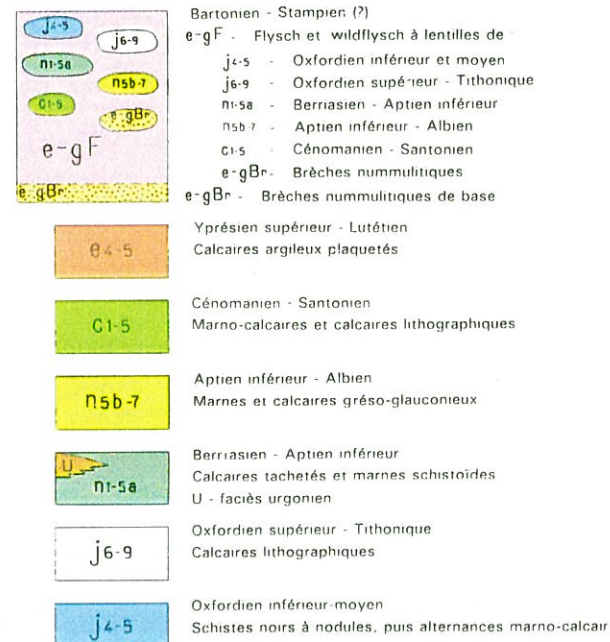 Bartonien - Stampien (?)
e-gF - Flysch et wildflysch à lentilles de
j4-5 - Oxfordien inférieur et moyen
j6-9 - Oxfordien supérieur - Tithonique
n1-5a - Berriasien - Aptien inférieur
n5b-7 - Aptien inférieur - Albien
c1-5 - Cénomanien - Santonien
e-gBr - Brèches nummulitiques
e-gBr - Brèches nummulitiques de base
j4-5
j6-9
n1-5a
n5b-7
c1-5
e-gBr
e-gF
e-gBr
e4-5
Yprésien supérieur - Lutétien
Calcaires argileux plaquetés
C1-5
Cénomanien - Santonien
Marno-calcaires et calcaires lithographiques
n5b-7
Aptien inférieur - Albien
Marnes et calcaires gréso-glauconieux
U
n1-5a
Berriasien - Aptien inférieur
Calcaires tachetés et marnes schistoïdes
U - faciès urgonien
j6-9
Oxfordien supérieur - Tithonique
Calcaires lithographiques
j4-5
Oxfordien inférieur-moyen
Schistes noirs à nodules, puis alternances marno-calcair